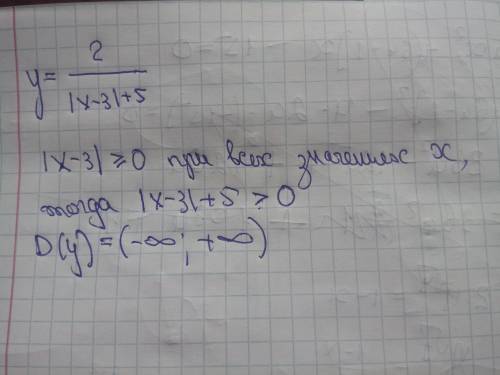 y = 2 / |x-3|+5
|x-3| ≥ 0 при всех значениях x,
тогда |x-3|+5 > 0
D(y) = (-∞; +∞)